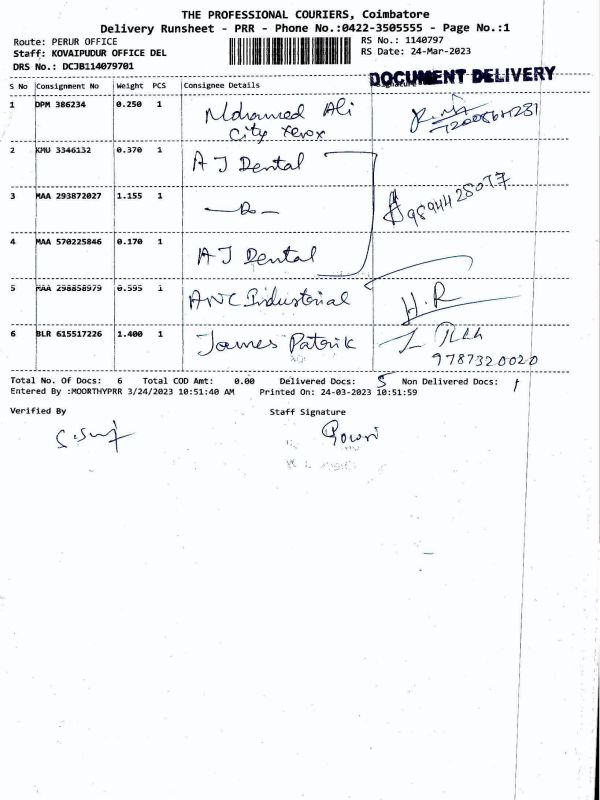 THE PROFESSIONAL COURIERS, Coimbatore
Delivery Runsheet - PRR - Phone No.:0422-3505555 - Page No.:1
Route: PERUR OFFICE
RS No.: 1140797
Staff: KOVAIPUDUR OFFICE DEL
RS Date: 24-Mar-2023
DRS No.: DCJB114079701
DOCUMENT DELIVERY
S No Consignment No Weight PCS Consignee Details
1 DPM 386234 0.250 1 Mohamed Ali
City Xerox
2 KMU 3346132 0.370 1 A J Dental
3 MAA 293872027 1.155 1 9894428077
4 MAA 570225846 0.170 1 A J Dental
5 MAA 298858979 0.595 1 ANC Industorial H.R
6 BLR 615517226 1.400 1 James Patrik
9787320020
Total No. Of Docs: 6 Total COD Amt: 0.00 Delivered Docs: 5 Non Delivered Docs: 1
Entered By :MOORTHYPRR 3/24/2023 10:51:40 AM Printed On: 24-03-2023 10:51:59
Verified By Staff Signature
Gowri